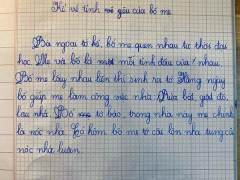 Kể về tính xấu của bố mẹ
Bà ngoại tớ kể, bố mẹ quen nhau từ thời đại
học. Mẹ và bố là mối tình đầu của nhau.
Bố mẹ lấy nhau liền thì sinh ra tớ. Hằng ngày
bố giúp mẹ làm công việc nhà. Rửa bát, giặt đồ,
lau nhà. Bố tớ bảo, trong nhà này mẹ chính
là nóc nhà. Có hôm bố mẹ tớ cãi lộn nhà tung cả
nóc nhà luôn.